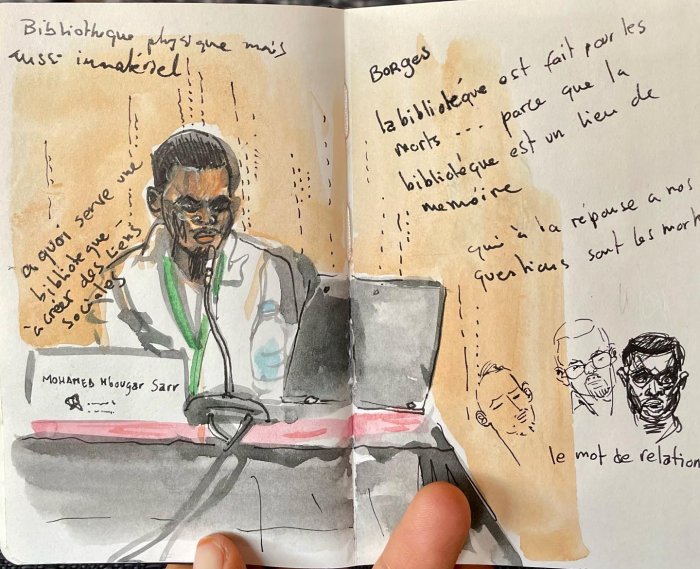 Bibliothèque physique mais
aussi immatériel
a quoi serve une
bibliotèque -
à créer des liens
sociales
MOHAMEB Mbougar Sarr
BORGES
la bibliotéque est fait pour les
morts ... parce que la
bibliotéque est un lieu de
memóire
qui à la réponse a nos
questions sont les morts
le mot de relation